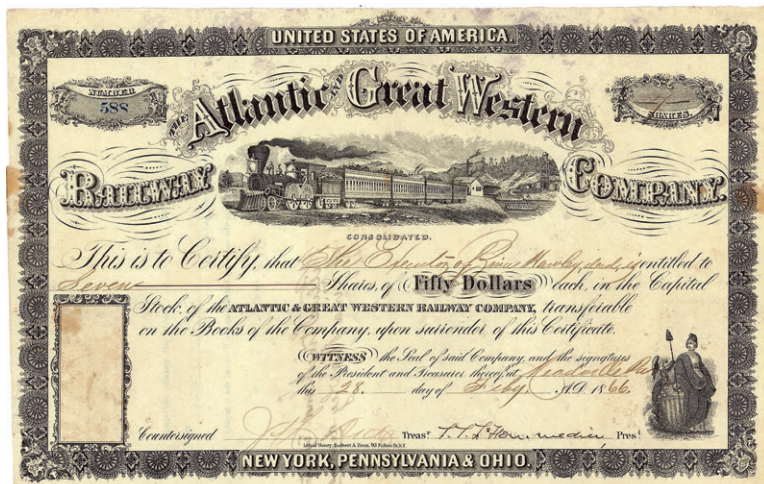 UNITED STATES OF AMERICA.
NUMBER
588
THE Atlantic and Great Western
7
SHARES.
RAILWAY
COMPANY.
CONSOLIDATED.
This is to Certify, that The Executor of Hawley, decd, is entitled to
Seven Shares, of Fifty Dollars each, in the Capital
Stock, of the ATLANTIC & GREAT WESTERN RAILWAY COMPANY, transferable
on the Books of the Company, upon surrender of this Certificate.
WITNESS the Seal of said Company, and the signatures
of the President and Treasurer thereof at Meadville Pa
this 28. day of Feby. A.D. 1866.
Countersigned Treas. Pres.
NEW YORK, PENNSYLVANIA & OHIO.